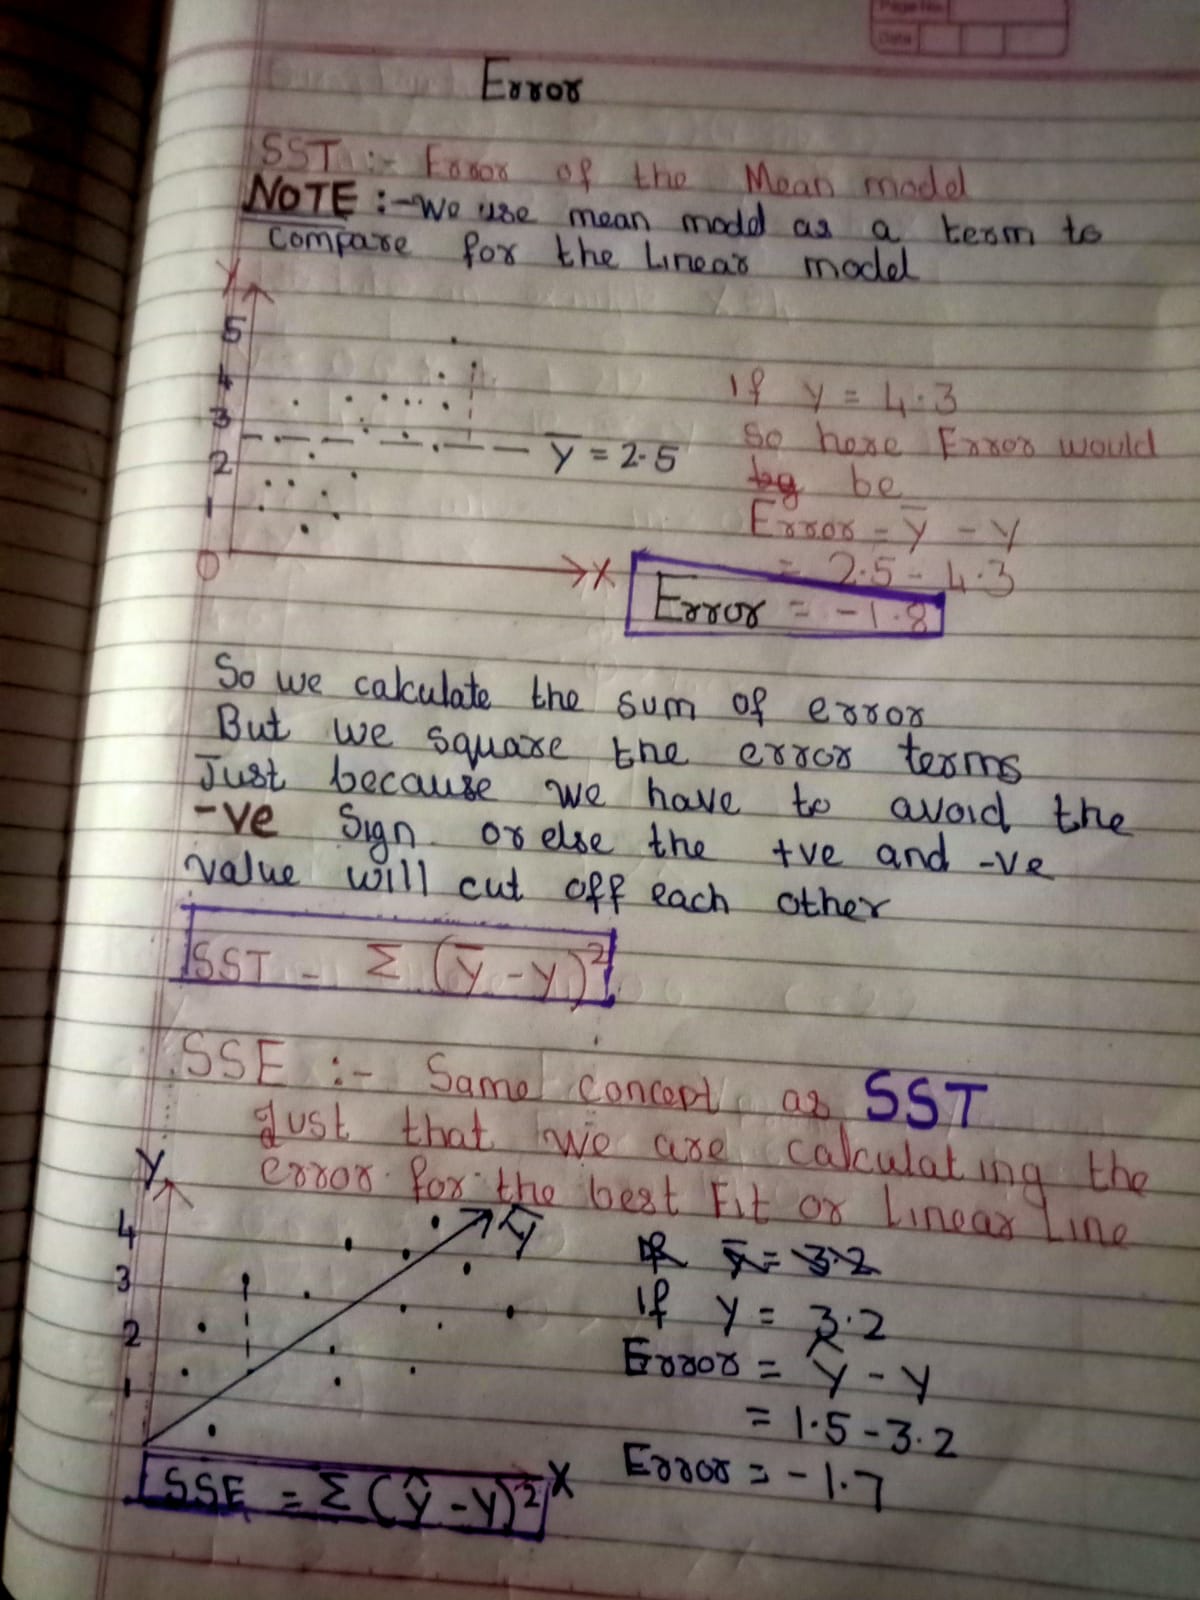 Page No.
Date
Error
SST :- Error of the Mean model
NOTE :- We use mean model as a term to
compare for the Linear model
Y
5
4
3
2
1
0
X
y̅ = 2.5
If y = 4.3
So here Error would
be
Error = y̅ - y
= 2.5 - 4.3
Error = -1.8
So we calculate the sum of error
But we square the error terms
Just because we have to avoid the
-ve Sign or else the +ve and -ve
value will cut off each other
SST = Σ (y̅ - y)²
SSE :- Same concept as SST
Just that we are calculating the
error for the best Fit or Linear Line
Y
4
3
2
1
X
If y = 3.2
Error = ŷ - y
= 1.5 - 3.2
Error = -1.7
SSE = Σ (ŷ - y)²